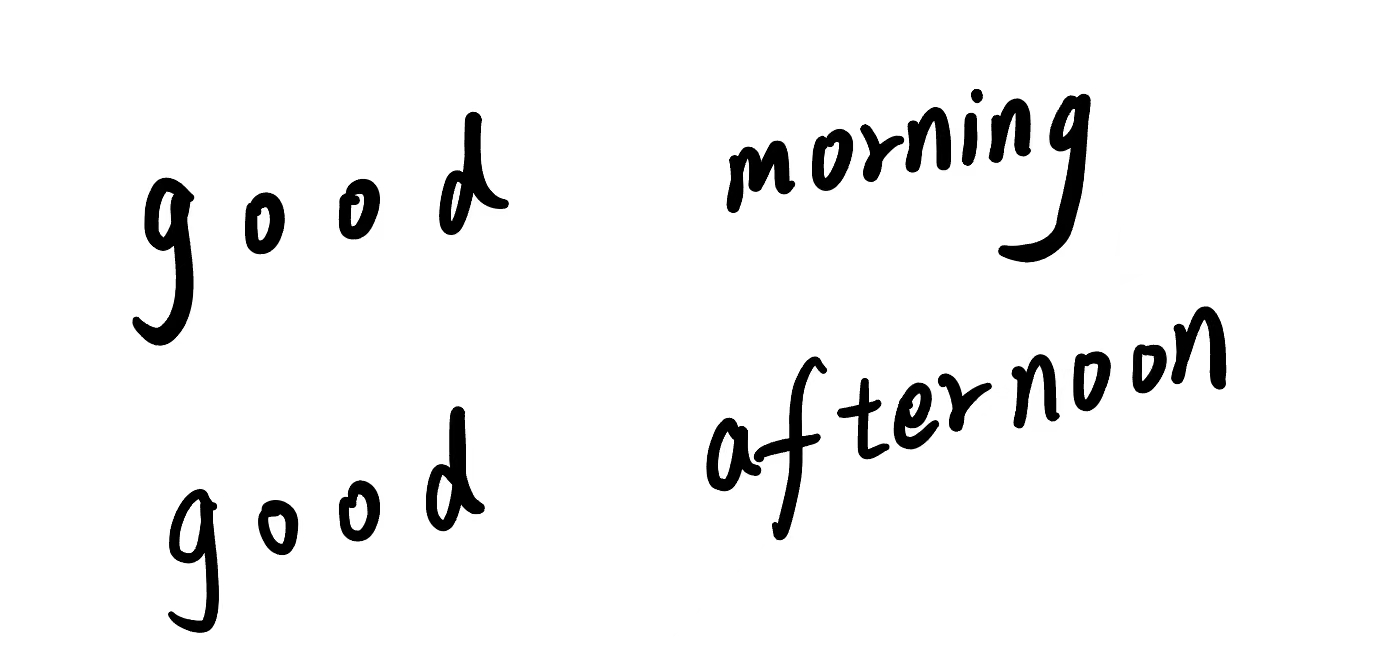 good morning
good afternoon